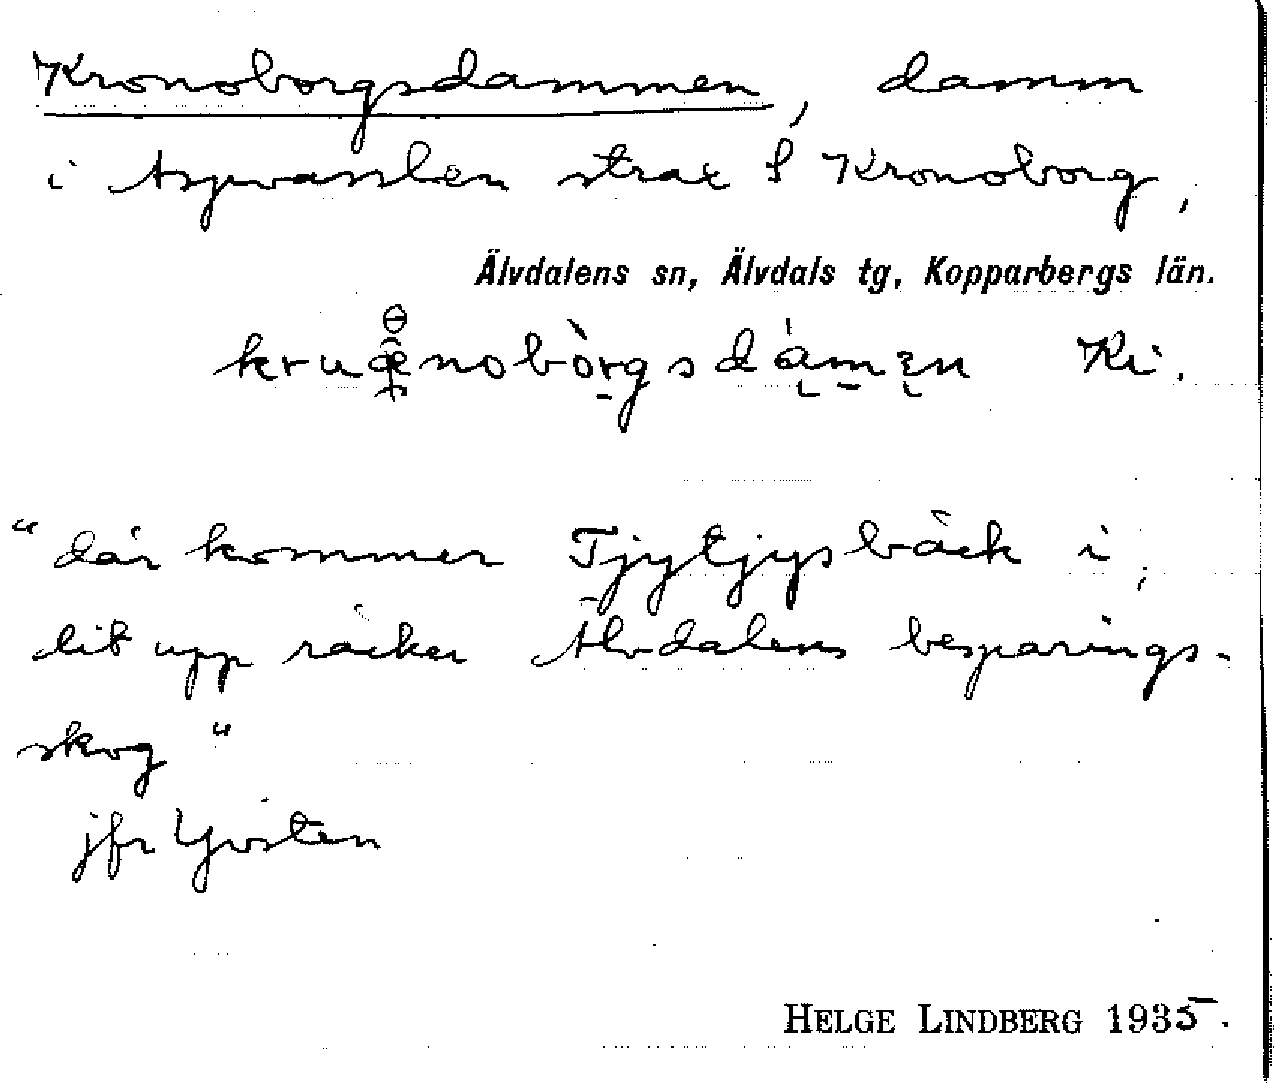 Kronoborgsdammen, damm
i Aspvasslen strax S Kronoborg,
Älvdalens sn, Älvdals tg, Kopparbergs län.
Ki.
"där kommer Tjyltjysbäck i,
dit upp räcker Älvdalens besparings-
skog"
jfr Yvsten
HELGE LINDBERG 1935.